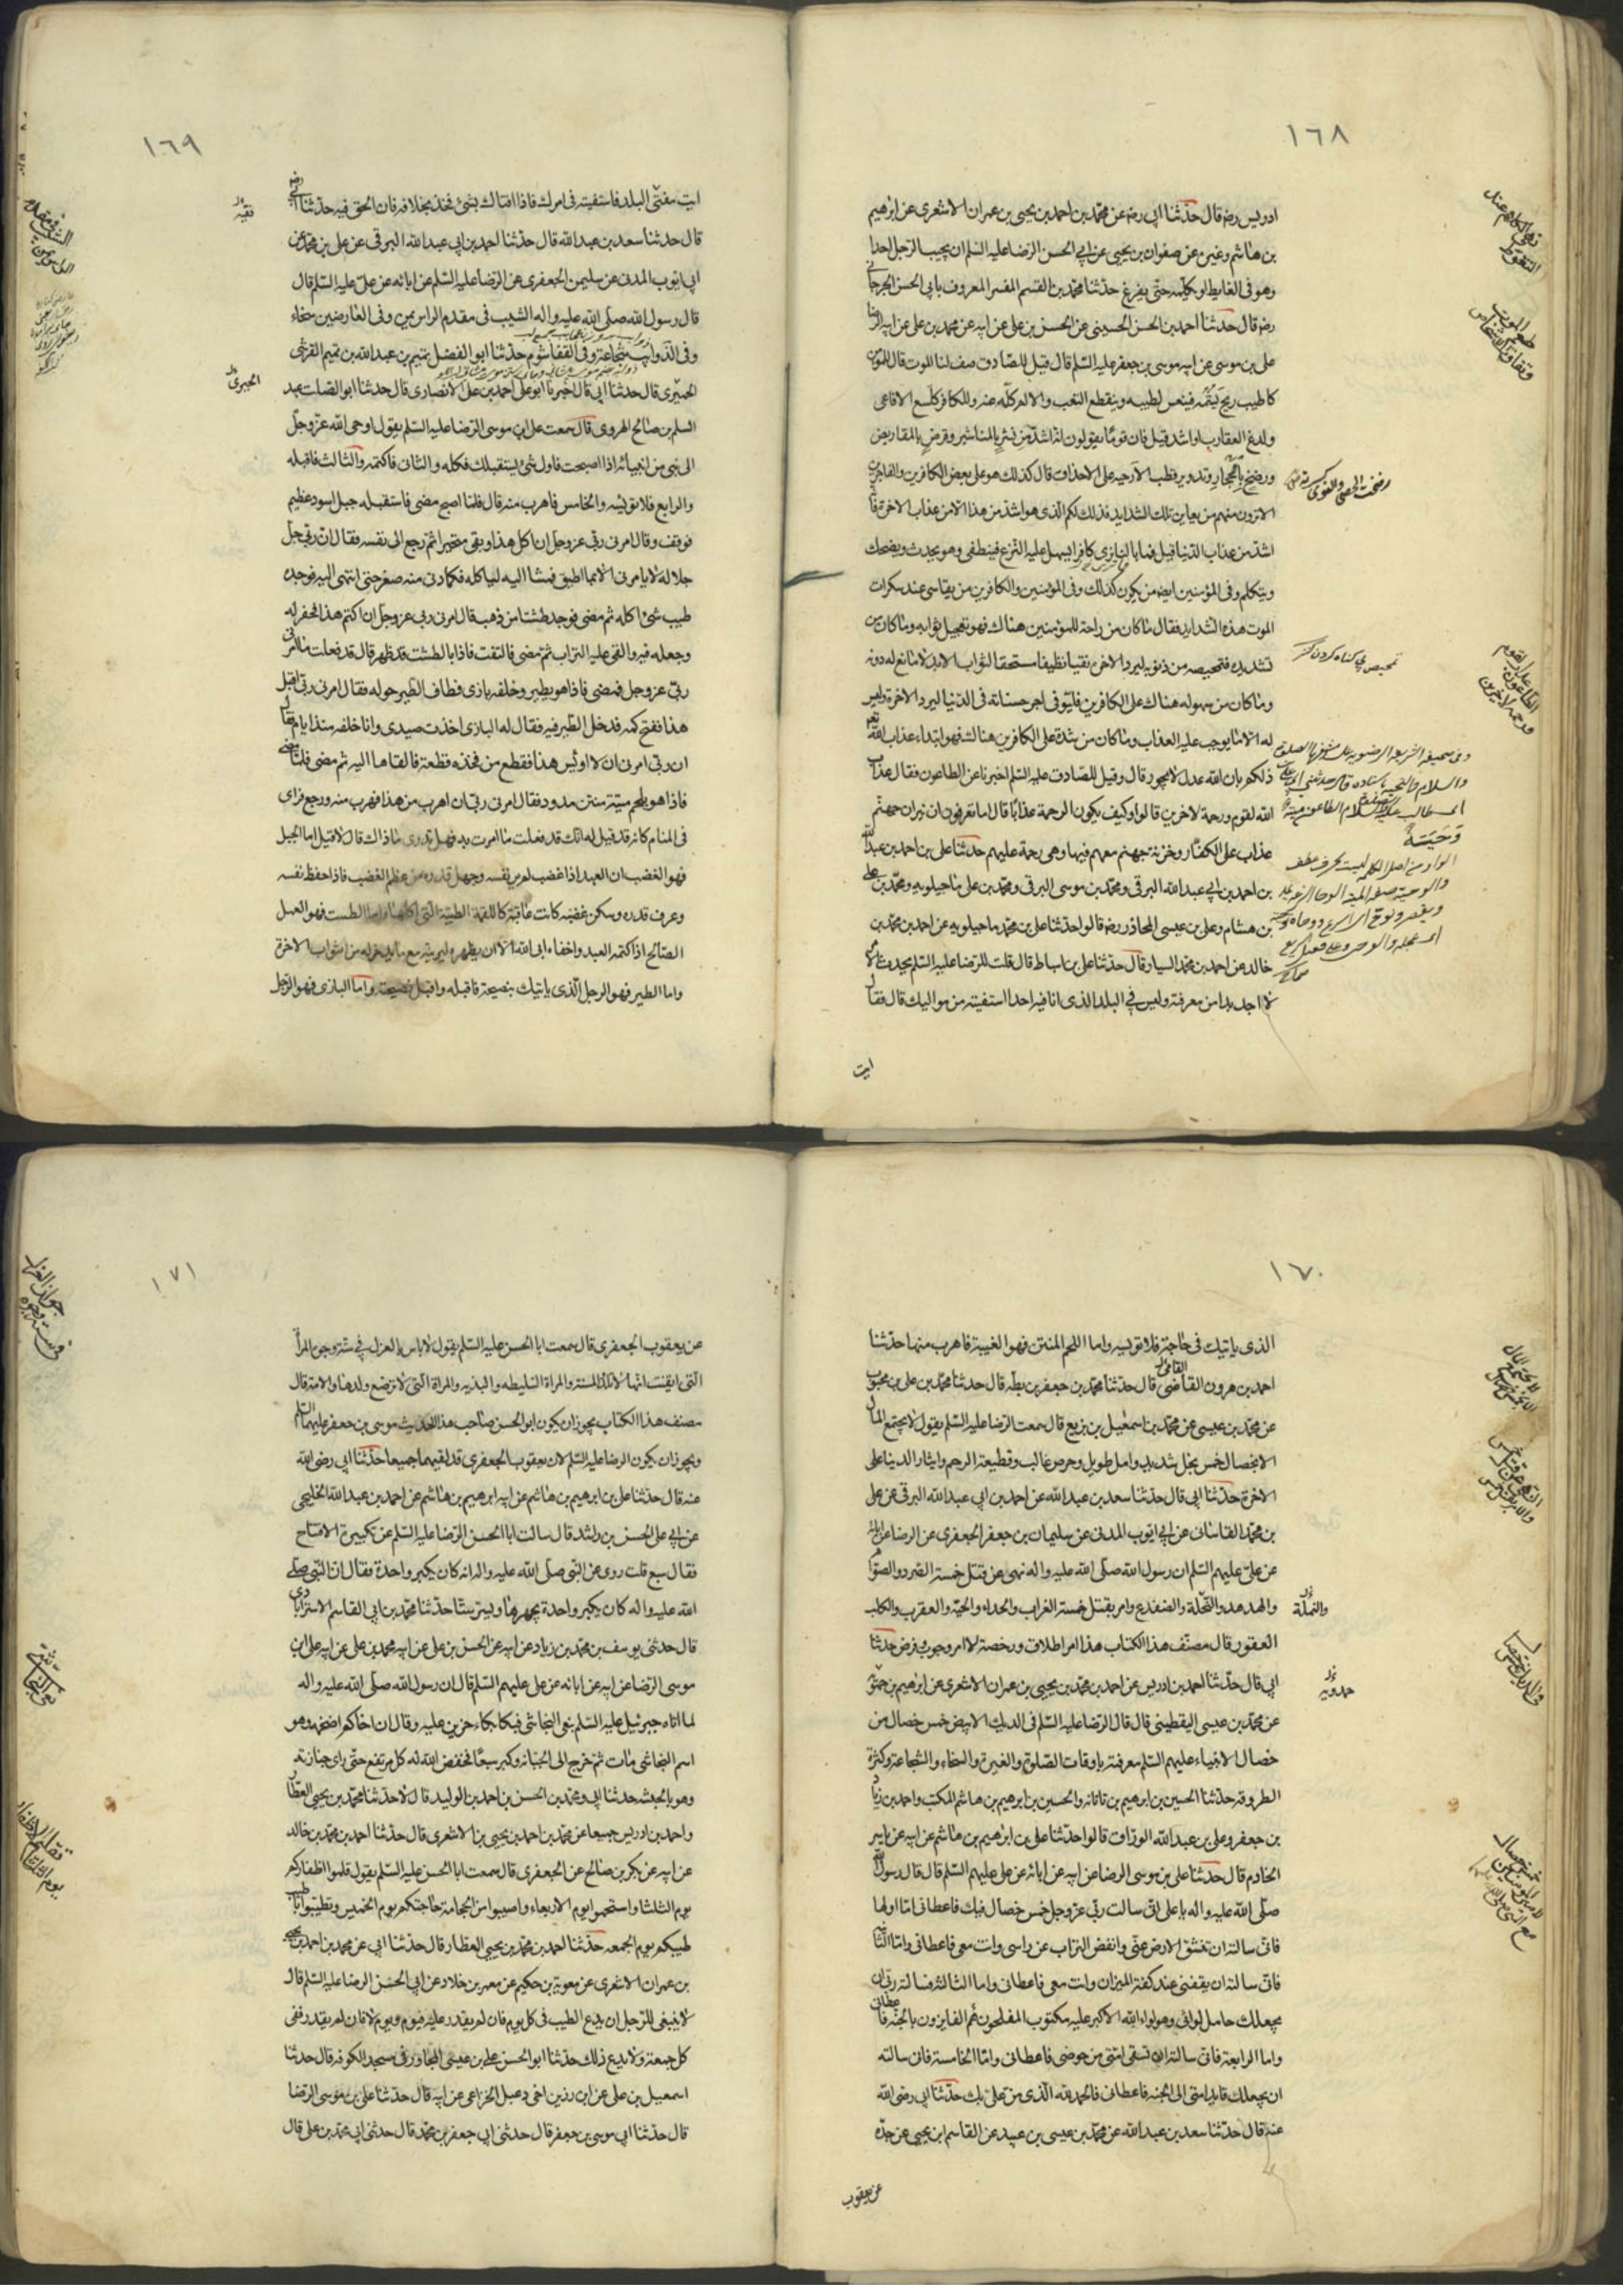 ١٦٨
ادريس رضه قال حدثنا ابى رضه عن محمد بن احمد بن يحيى بن عمران الاشعرى عن ابرهيم
بن هاشم وغيره عن صفوان بن يحيى عن ابى الحسن الرضا عليه السلم ان يجيب الرجل احدا
وهو فى الغايط او يكلمه حتى يفرغ حدثنا محمد بن القسم المفسر المعروف بابى الحسن الجرجانى
رضه قال حدثنا احمد بن الحسن الحسينى عن الحسن بن على عن ابيه عن محمد بن على عن ابيه الرضا
على بن موسى عن ابيه موسى بن جعفر عليه السلم قال قيل للصادق صف لنا الموت قال للمؤمن
كاطيب ريح يشمه فينعس لطيبه وينقطع التعب والالم كله عنه وللكافر كلسع الافاعى
ولدغ العقارب او اشد قيل فان قوما يقولون انه اشد من نشر بالمناشير وقرض بالمقاريض
ورضخ بالاحجار وتدوير قطب الارحيه على الاحداق قال كذلك هو على بعض الكافرين والفاجرين
الاترون منهم من يعاين تلك الشدايد فذلك لكم الذى هو اشد من هذا الا من عذاب الاخرة فانه
اشد من عذاب الدنيا قيل فما بالنا نرى كافرا يسهل عليه النزع فينطفى وهو يحدث ويضحك
ويتكلم وفى المؤمنين ايضه من يكون كذلك وفى المؤمنين والكافرين من يقاسى عند سكرات
الموت هذه الشدايد فقال ما كان من راحة للمؤمنين هناك فهو تعجيل ثوابه وما كان من
تشديده فتمحيصه من ذنوبه ليرد الاخرة نقيا نظيفا مستحقا لثواب الابد لا مانع له دونه
وما كان من سهوله هناك على الكافرين فليوفى اجر حسناته فى الدنيا ليرد الاخرة وليس
له الا ما يوجب عليه العذاب وما كان من شدة على الكافرين هنالك فهو ابتداء عذاب الله
ذلكم بان الله عدل لا يجور قال وقيل للصادق عليه السلم اخبرنا عن الطاعون فقال عذاب
الله لقوم ورحمة لاخرين قالوا وكيف يكون الرحمة عذابا قال اما تعرفون ان نيران جهنم
عذاب على الكفار وخزنة جهنم معهم فيها وهى رحمة عليهم حدثنا على بن احمد بن عبد الله
بن احمد بن ابى عبد الله البرقى ومحمد بن موسى البرقى ومحمد بن على ماجيلويه ومحمد بن على
بن هشام وعلى بن عيسى المجاور رضه قالوا حدثنا على بن محمد ماجيلويه عن احمد بن محمد بن
خالد عن احمد بن محمد السيار قال حدثنا على بن اسباط قال قلت للرضا عليه السلم يحدث الامر
لا اجد بدا من معرفته وليس فى البلد الذى انا فيه احدا استفتيه من مواليك قال فقال
ايت
١٦٩
ايت مفتى البلد فاستفيته فى امرك فاذا افتاك بشئ فخذ بخلافه فان الحق فيه حدثنا ابى
فقيه
قال حدثنا سعد بن عبد الله قال حدثنا احمد بن ابى عبد الله البرقى عن على بن محمد عن
ابى ايوب المدنى عن سليمن الجعفرى عن الرضا عليه السلم عن ابائه عن على عليه السلم قال
قال رسول الله صلى الله عليه واله الشيب فى مقدم الراس يمن وفى العارضين سخاء
وفى الذوايب شجاعة وفى القفا شوم حدثنا ابو الفضل تميم بن عبد الله بن تميم القرشى
الحميرى قال حدثنا ابى قال اخبرنا ابو على احمد بن على الانصارى قال حدثنا ابو الصلت عبد
السلم بن صالح الهروى قال سمعت على بن موسى الرضا عليه السلم يقول اوحى الله عز وجل
الى نبى من انبيائه اذا اصبحت فاول شئ يستقبلك فكله والثانى فاكتمه والثالث فاقبله
والرابع فلا تويسه والخامس فاهرب منه قال فلما اصبح مضى فاستقبله جبل اسود عظيم
فوقف وقال امرنى ربى عز وجل ان اكل هذا وبقى متحيرا ثم رجع الى نفسه فقال ان ربى جل
جلاله لا يامرنى الا بما اطيق فمشا اليه لياكله فكلما دنى منه صغر حتى انتهى اليه فوجده
طيب شئ اكله ثم مضى فوجد طشتا من ذهب قال امرنى ربى عز وجل ان اكتم هذا فحفر له
وجعله فيه والقى عليه التراب ثم مضى فالتفت فاذا بالطشت قد ظهر قال قد فعلت ما امرنى
ربى عز وجل فمضى فاذا هو بطير وخلفه بازى فطاف الطير حوله فقال امرنى ربى اقبل
هذا ففتح كمه فدخل الطير فيه فقال له البازى اخذت صيدى وانا خلفه منذ ايام فقال
ان ربى امرنى ان لا اويس هذا فقطع من فخذه قطعة فالقاها اليه ثم مضى فلما مضى
فاذا هو بلحم ميتة منتن مدود فقال امرنى ربى ان اهرب من هذا فهرب منه ورجع فراى
فى المنام كانه قد قيل له انك قد فعلت ما امرت به فهل تدرى ماذاك قال لا قيل اما الجبل
فهو الغضب ان العبد اذا غضب لم ير نفسه وجهل قدره من عظم الغضب فاذا حفظ نفسه
وعرف قدره وسكن غضبه كانت عاقبته كاللقمة الطيبة التى اكلها واما الطست فهو العمل
الصالح اذا كتمه العبد واخفاه ابى الله الا ان يظهره ليزينه به مع ما يدخره له من ثواب الاخرة
واما الطير فهو الرجل الذى ياتيك بنصيحة فاقبله واقبل نصيحته واما البازى فهو الرجل
١٧٠
الذى ياتيك فى حاجة فلا تويسه واما اللحم المنتن فهو الغيبة فاهرب منها حدثنا
احمد بن هرون القاضى قال حدثنا محمد بن جعفر بن بطه قال حدثنا محمد بن على بن محبوب
عن محمد بن عيسى عن محمد بن اسمعيل بن بزيع قال سمعت الرضا عليه السلم يقول لا يجتمع المال
الا بخصال خمس بخل شديد وامل طويل وحرص غالب وقطيعة الرحم وايثار الدينا على
الاخرة حدثنا ابى قال حدثنا سعد بن عبد الله عن احمد بن ابى عبد الله البرقى عن على
بن محمد القاسانى عن ابى ايوب المدنى عن سليمان بن جعفر الجعفرى عن الرضا عن ابائه
عن على عليهم السلم ان رسول الله صلى الله عليه واله نهى عن قتل خمسة الصرد والصوام
والهدهد والنحلة والضفدع وامر بقتل خمسة الغراب والحداء والحية والعقرب والكلب
والنملة
العقور قال مصنف هذا الكتاب هذا امر اطلاق ورخصة لا امر وجوب وفرض حدثنا
ابى قال حدثنا احمد بن ادريس عن احمد بن محمد بن يحيى بن عمران الاشعرى عن ابرهيم بن حمويه
حمدويه
عن محمد بن عيسى اليقطينى قال قال الرضا عليه السلم فى الديك الابيض خمس خصال من
خصال الانبياء عليهم السلم معرفته باوقات الصلوة والغيرة والسخاء والشجاعة وكثرة
الطروقه حدثنا الحسين بن ابرهيم بن تاتانه والحسين بن ابرهيم بن هاشم المكتب واحمد بن زياد
بن جعفر وعلى بن عبد الله الوراق قالوا حدثنا على بن ابرهيم بن هاشم عن ابيه عن ياسر
الخادم قال حدثنا على بن موسى الرضا عن ابيه عن ابائه عن على عليهم السلم قال قال رسول الله
صلى الله عليه واله يا على انى سالت ربى عز وجل خمس خصال فيك فاعطانى اما اولها
فانى سالته ان تنشق الارض عنى وانفض التراب عن راسى وانت معى فاعطانى واما الثانيه
فانى سالته ان يقفنى عند كفة الميزان وانت معى فاعطانى واما الثالثة فسالته ربى ان
يجعلك حامل لوائى وهو لواء الله الاكبر عليه مكتوب المفلحون هم الفايزون بالجنه فاعطانى
واما الرابعة فانى سالته ان تسقى امتى من حوضى فاعطانى واما الخامسة فانى سالته
ان يجعلك قايد امتى الى الجنه فاعطانى فالحمد لله الذى من على بك حدثنا ابى رضى الله
عنه قال حدثنا سعد بن عبد الله عن محمد بن عيسى بن عبيد عن القاسم بن يحيى عن جده
عن يعقوب
١٧١
عن يعقوب الجعفرى قال سمعت ابا الحسن عليه السلم يقول لا باس بالعزل فى ستة وجوه المراة
التى ايقنت انها لا تلد والمسنة والمراة السليطه والبذيه والمراة التى لا ترضع ولدها والامة قال
مصنف هذا الكتاب يجوز ان يكون ابو الحسن صاحب هذا الحديث موسى بن جعفر عليهما السلم
ويجوز ان يكون الرضا عليه السلم لان يعقوب الجعفرى قد لقيهما جميعا حدثنا ابى رضى الله
عنه قال حدثنا على بن ابرهيم بن هاشم عن ابيه ابرهيم بن هاشم عن احمد بن عبد الله الخليجى
عن ابى على الحسن بن راشد قال سالت ابا الحسن الرضا عليه السلم عن تكبيرة الافتتاح
فقال سبع قلت روى عن النبى صلى الله عليه واله انه كان يكبر واحدة فقال ان النبى صلى
الله عليه واله كان يكبر واحدة يجهر بها ويسر ستا حدثنا محمد بن ابى القاسم الاسترابادى
قال حدثنى يوسف بن محمد بن زياد عن ابيه عن الحسن بن على عن ابيه محمد بن على عن ابيه على بن
موسى الرضا عن ابيه عن ابائه عن على عليهم السلم قال ان رسول الله صلى الله عليه واله
لما اتاه جبرئيل عليه السلم بنعى النجاشى فبكا بكاء حزين عليه وقال ان اخاكم اصحمه وهو
اسم النجاشى مات ثم خرج الى الجبانه وكبر سبعا فخفض الله له كل مرتفع حتى راى جنازته
وهو بالحبشه حدثنا ابى ومحمد بن الحسن بن احمد بن الوليد قالا حدثنا محمد بن يحيى العطار
واحمد بن ادريس جميعا عن محمد بن احمد بن يحيى بن الاشعرى قال حدثنا احمد بن محمد بن خالد
عن ابيه عن بكر بن صالح عن الجعفرى قال سمعت ابا الحسن عليه السلم يقول قلموا اظفاركم
يوم الثلثا واستحموا يوم الاربعاء واصيبوا من الحجامة حاجتكم يوم الخميس وتطيبوا باطيب
طيبكم يوم الجمعه حدثنا احمد بن محمد بن يحيى العطار قال حدثنا ابى عن محمد بن احمد بن يحيى
بن عمران الاشعرى عن معوية بن حكيم عن معمر بن خلاد عن ابى الحسن الرضا عليه السلم قال
لا ينبغى للرجل ان يدع الطيب فى كل يوم فان لم يقدر عليه فيوم ويوم لا فان لم يقدر ففى
كل جمعة ولا يدع ذلك حدثنا ابو الحسن على بن عيسى المجاور فى مسجد الكوفه قال حدثنا
اسمعيل بن على عن ابن رزين اخى دعبل الخزاعى عن ابيه قال حدثنا على بن موسى الرضا
قال حدثنا ابى موسى بن جعفر قال حدثنى ابى جعفر بن محمد قال حدثنى ابى محمد بن على قال